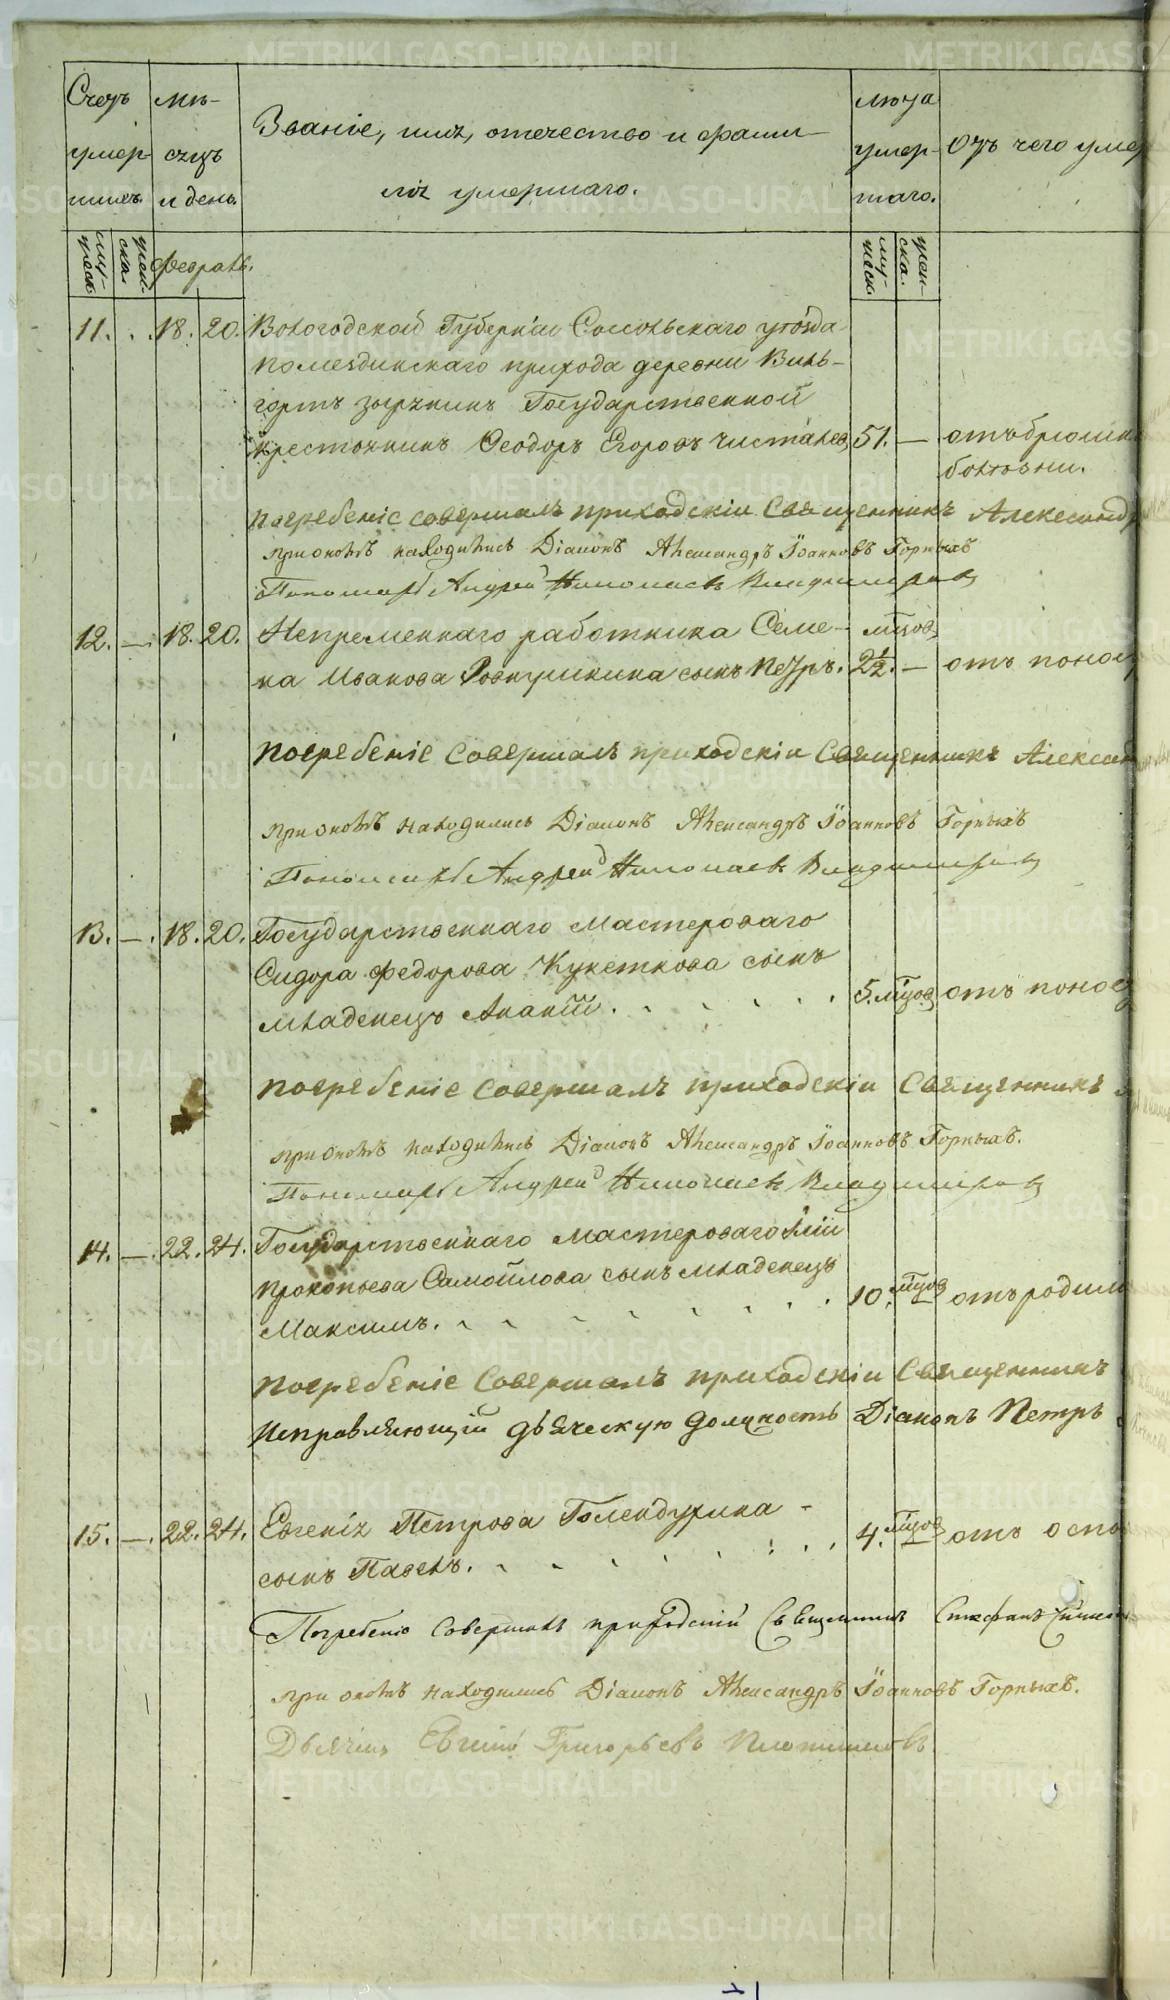 Счетъ умер- шихъ.
мѣ- сяцъ и день.
Званіе, имя, отечество и фами-
лія умершаго.
лѣта умер- шаго.
Отъ чего умер
муж- ческ.
жен- ска.
Февраль.
муж- ческ.
жен- ска.
11. . 18. 20. Вологодской Губерніи Сысольскаго уѣзда
Помездинскаго прихода деревни Виль-
гортъ зырянинъ Государственной
Крестьянинъ Ѳеодоръ Егоровъ Чисталев 51. — отъ брюшно
болѣзни.
Погребеніе совершалъ приходскіи Священникъ Александр
при ономъ находились Діаконъ Александръ Іоанновъ Горныхъ
Пономарь Андрей Николаевъ Владимиров
12. — 18. 20. Непременнаго работника Семе- мѣсяцов
на Иванова сынъ Петръ. 2½. — отъ понос
Погребеніе Совершалъ приходскіи Священникъ Александ
при ономъ находились Діаконъ Александръ Іоанновъ Горныхъ
Пономарь Андрей Николаевъ Владимиров
13. — 18. 20. Государственнаго Мастероваго
Сидора Федорова сынъ
младенецъ Ананій. 5. мцов отъ понос
Погребеніе Совершалъ приходскіи Священникъ
при ономъ находились Діаконъ Александръ Іоанновъ Горныхъ.
Пономарь Андрей Николаевъ Владимиров
14. — 22. 24. Государственнаго Мастероваго Иліи
Прокопьева Самойлова сынъ младенецъ
Максимъ. 10. мцов отъ родим
Погребеніе Совершалъ приходскіи Священникъ
Исправляющій дьяческую должность Діаконъ Петръ
15. — 22. 24. Евгенія Петрова Голендухина
сынъ Павелъ. 4. мцов отъ оспы
Погребеніе Совершалъ приходскій Священникъ Стефанъ
при ономъ находились Діаконъ Александръ Іоанновъ Горныхъ.
Дьячекъ Евгеній Григорьевъ Плотниковъ
METRIKI.GASO-URAL.RU